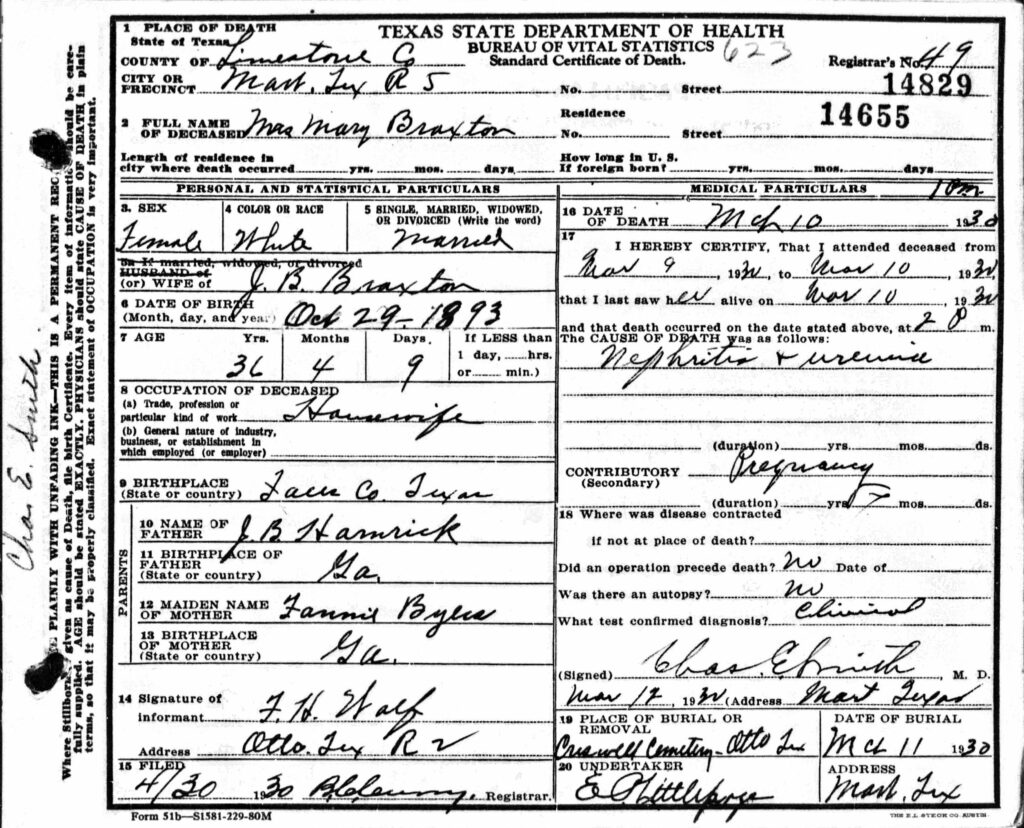 1 PLACE OF DEATH
State of Texas
COUNTY OF Limestone Co
CITY OR PRECINCT Mart, Tex R 5
TEXAS STATE DEPARTMENT OF HEALTH
BUREAU OF VITAL STATISTICS 623
Standard Certificate of Death.
Registrar's No. 49
14829
No. Street
14655
2 FULL NAME OF DECEASED Mrs Mary Braxton
Residence
No. Street
Length of residence in city where death occurred yrs. mos. days
How long in U. S. If foreign born? yrs. mos. days
PERSONAL AND STATISTICAL PARTICULARS
3. SEX Female
4 COLOR OR RACE White
5 SINGLE, MARRIED, WIDOWED, OR DIVORCED (Write the word) Married
5a If married, widowed, or divorced
HUSBAND of
(or) WIFE OF J. B. Braxton
6 DATE OF BIRTH
(Month, day, and year) Oct 29-1893
7 AGE Yrs. Months Days If LESS than
1 day, hrs.
or min.)
36 4 9
8 OCCUPATION OF DECEASED
(a) Trade, profession or particular kind of work Housewife
(b) General nature of industry,
business, or establishment in
which employed (or employer)
9 BIRTHPLACE
(State or country) Falls Co. Texas
PARENTS
10 NAME OF FATHER J. B Hamrick
11 BIRTHPLACE OF FATHER
(State or country) Ga.
12 MAIDEN NAME OF MOTHER Fannie Byers
13 BIRTHPLACE OF MOTHER
(State or country) Ga.
14 Signature of informant F. H. Wolf
Address Otto. Tex R 2
15 FILED
4/30 1930 Registrar.
Form 51b—S1581-229-80M
MEDICAL PARTICULARS
16 DATE OF DEATH Mch 10 1930
17
I HEREBY CERTIFY, That I attended deceased from
Mar 9, 1930, to Mar 10, 1930,
that I last saw her alive on Mar 10, 1930
and that death occurred on the date stated above, at m.
The CAUSE OF DEATH was as follows:
Nephritis + uremia
(duration) yrs. mos. ds.
CONTRIBUTORY Pregnancy
(Secondary)
(duration) yrs. mos. ds.
18 Where was disease contracted
if not at place of death?
Did an operation precede death? No Date of
Was there an autopsy? No
What test confirmed diagnosis? Clinical
(Signed) Chas. E Smith, M. D.
Mar 12, 1930 (Address Mart Texas
19 PLACE OF BURIAL OR REMOVAL
Criswell Cemetery- Otto Tex
DATE OF BURIAL
Mch 11 1930
20 UNDERTAKER
E Littlepage
ADDRESS
Mart. Tex
THE E.L. STECK CO. AUSTIN
Chas E. Smith.
PLAINLY WITH UNFADING INK—THIS IS A PERMANENT
Where Stillborn, given as cause of Death, file birth Certificate. Every item of information should be care-
fully supplied. AGE should be stated EXACTLY. PHYSICIANS should state CAUSE OF DEATH in plain
terms, so that it may be properly classified. Exact statement of OCCUPATION is very important.